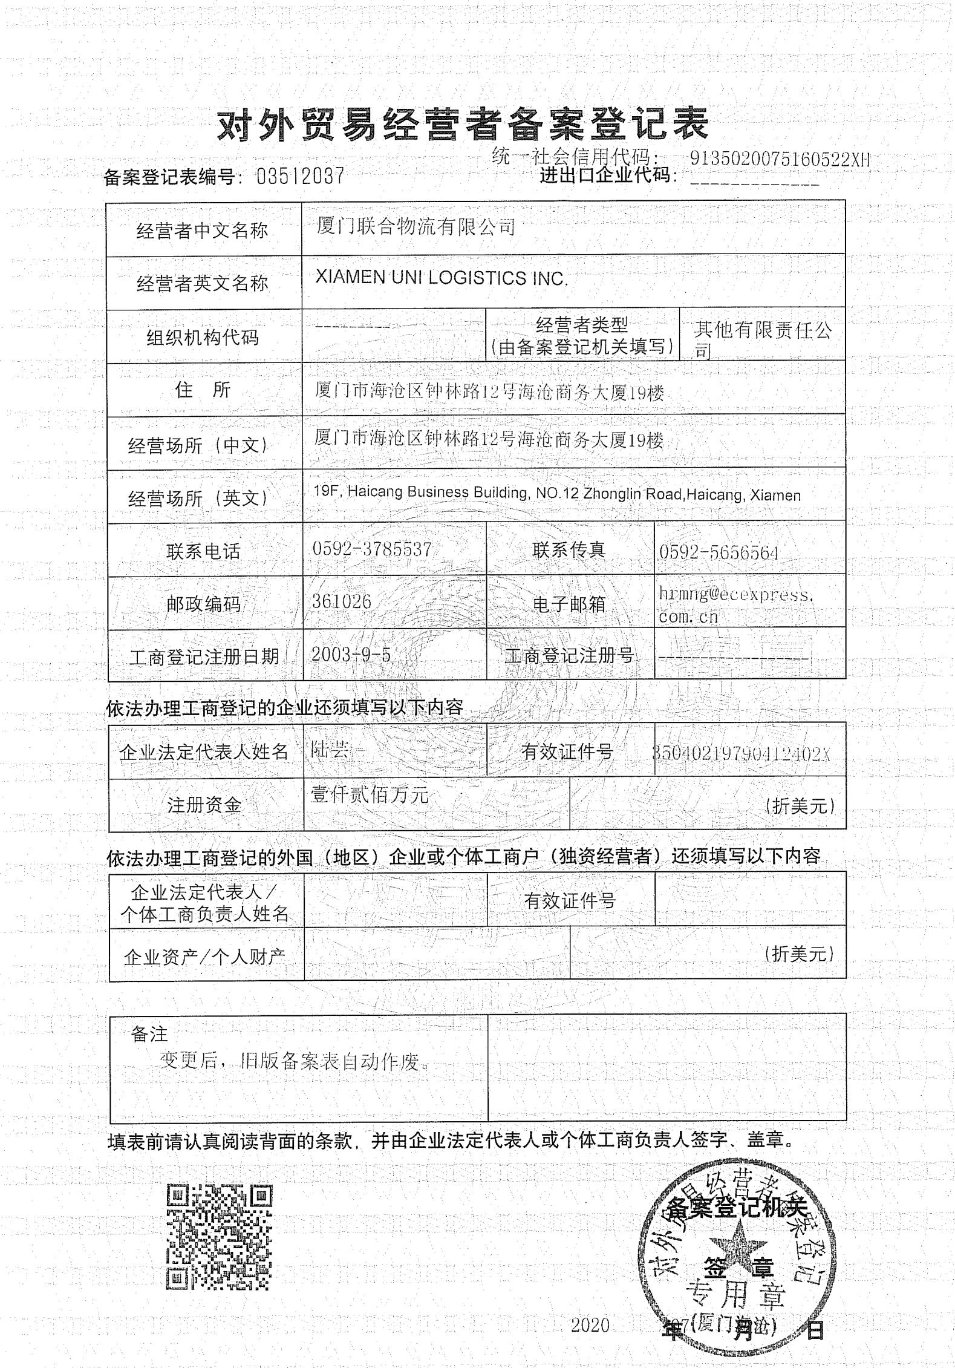 对外贸易经营者备案登记表
统一社会信用代码: 9135020075160522XH
备案登记表编号: 03512037 进出口企业代码: -------------
经营者中文名称 厦门联合物流有限公司
经营者英文名称 XIAMEN UNI LOGISTICS INC.
组织机构代码 --------- 经营者类型 (由备案登记机关填写) 其他有限责任公司
住 所 厦门市海沧区钟林路12号海沧商务大厦19楼
经营场所 (中文) 厦门市海沧区钟林路12号海沧商务大厦19楼
经营场所 (英文) 19F, Haicang Business Building, NO.12 Zhonglin Road,Haicang, Xiamen
联系电话 0592-3785537 联系传真 0592-5656564
邮政编码 361026 电子邮箱 hrmng@ecexpress.com.cn
工商登记注册日期 2003-9-5 工商登记注册号 -----------------
依法办理工商登记的企业还须填写以下内容
企业法定代表人姓名 陆芸 有效证件号 35040219790412402X
注册资金 壹仟贰佰万元 (折美元)
依法办理工商登记的外国 (地区) 企业或个体工商户 (独资经营者) 还须填写以下内容
企业法定代表人/
个体工商负责人姓名 有效证件号
企业资产/个人财产 (折美元)
备注
变更后，旧版备案表自动作废。
填表前请认真阅读背面的条款，并由企业法定代表人或个体工商负责人签字、盖章。
对外贸易经营者备案登记
备案登记机关
签 章
专用章
(厦门海沧)
2020 年 月 日